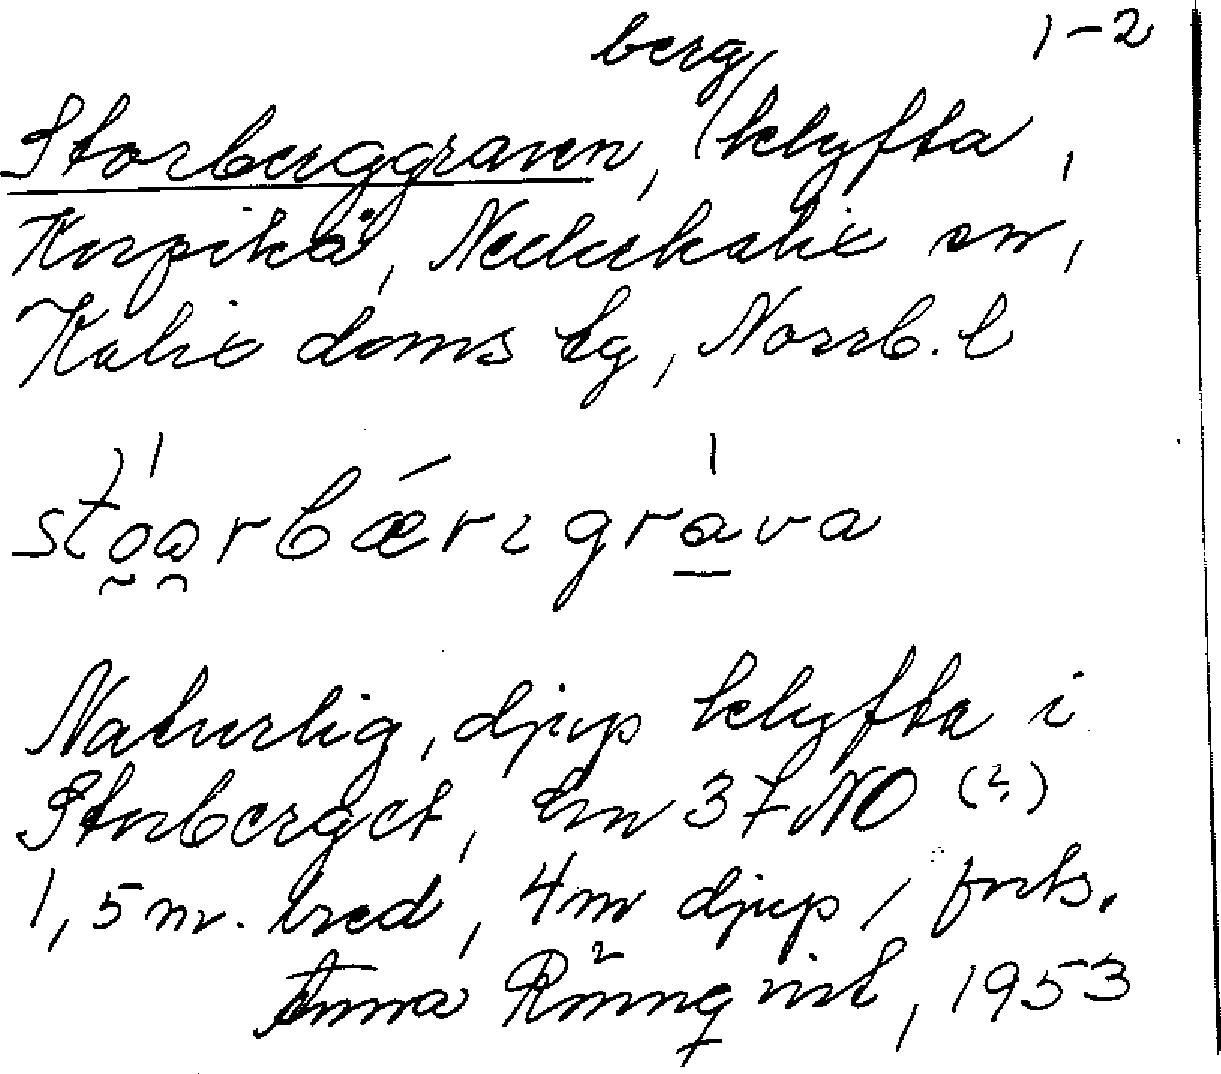 1-2
Storberggraven, bergklyfta,
Korpikå, Nederkalix sn,
Kalix doms lg, Norrb. l
stóo̯rbǽrɩgráva
Naturlig, djup klyfta i
Storberget, km 37 NO (2,)
1,5 m. bred, 4 m djup, forts.
Anna Rönnqvist, 1953